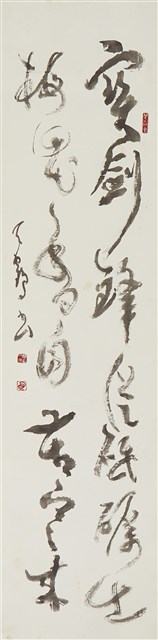 寶劍鋒從砥礪出
梅花香自苦寒來